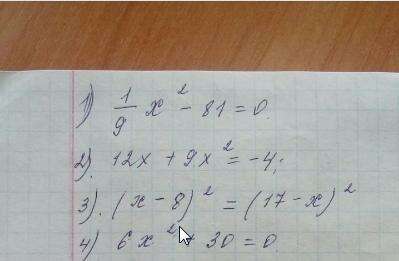 1) 1/9 x² - 81 = 0.
2). 12x + 9x² = -4;
3). (x - 8)² = (17 - x)²
4) 6x² + 30 = 0.